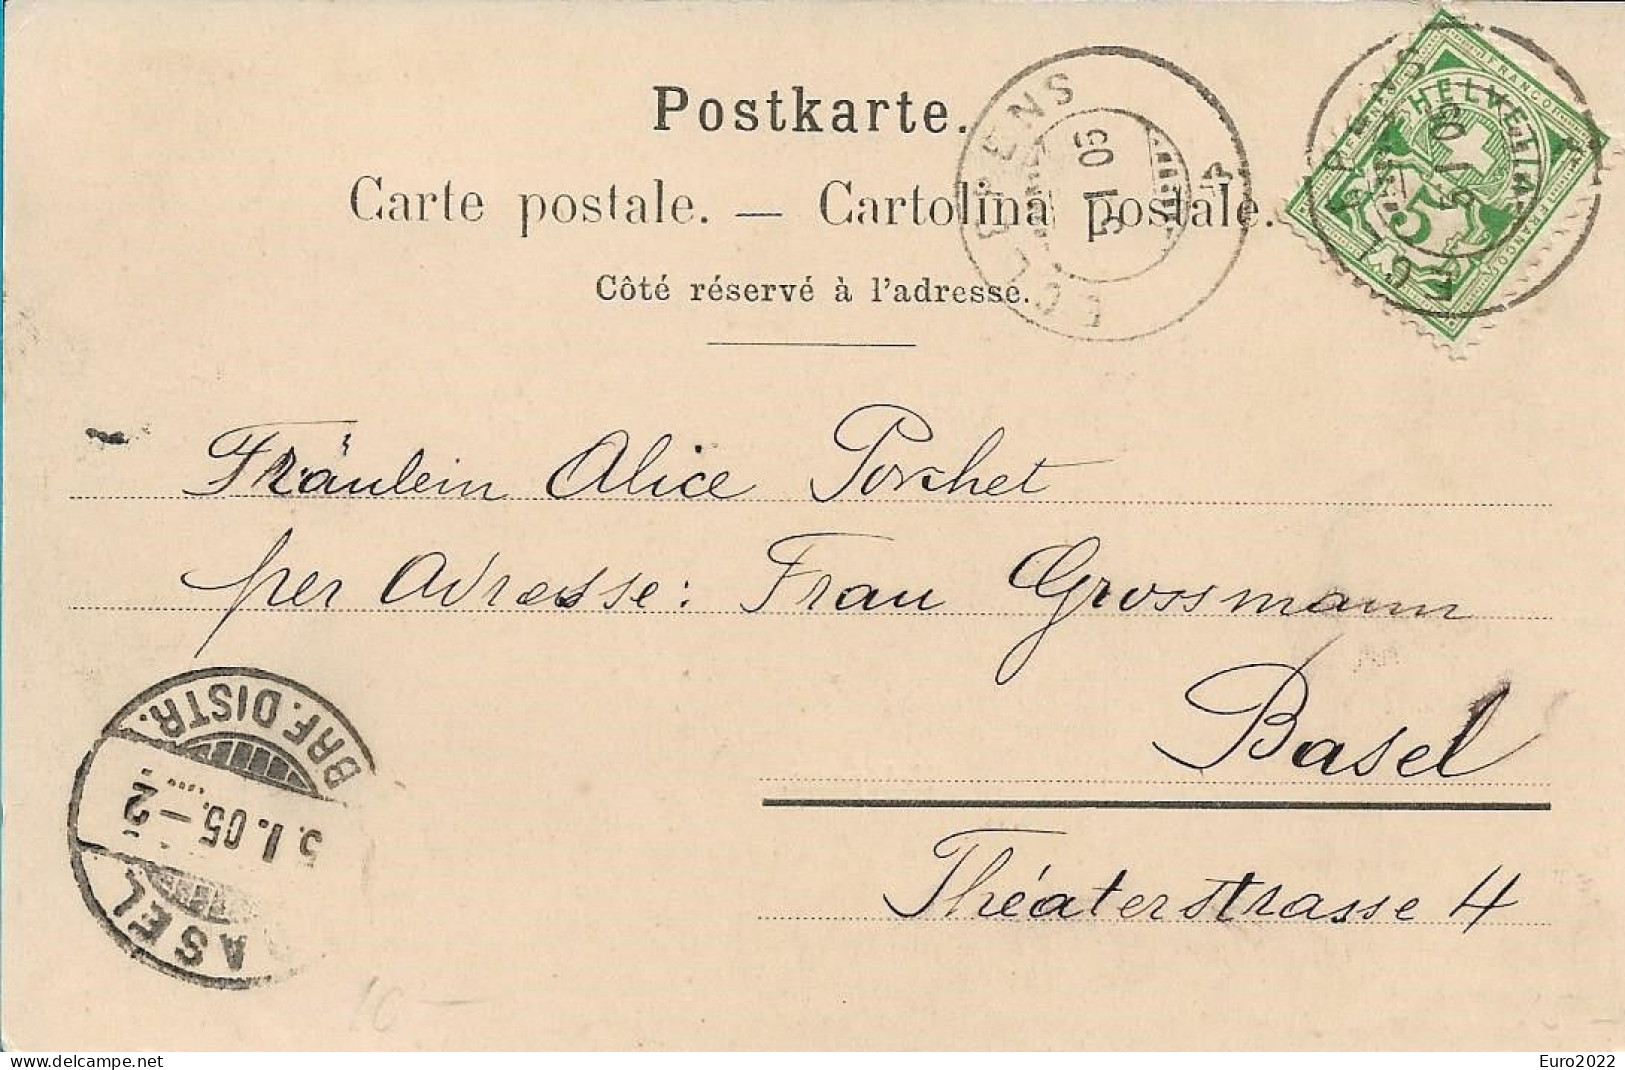 Postkarte.
Carte postale. — Cartolina postale.
Côté réservé à l'adresse.
ECLÉPENS
5 I 05
4
ECLÉPENS
HELVETIA
FRANCO
5
Fräulein Alice Porchet
per Adresse: Frau Grossmann
Basel
Théaterstrasse 4
BASEL
5.I.05.–2
BRF. DISTR.
16 –
delcampe.net
Euro2022